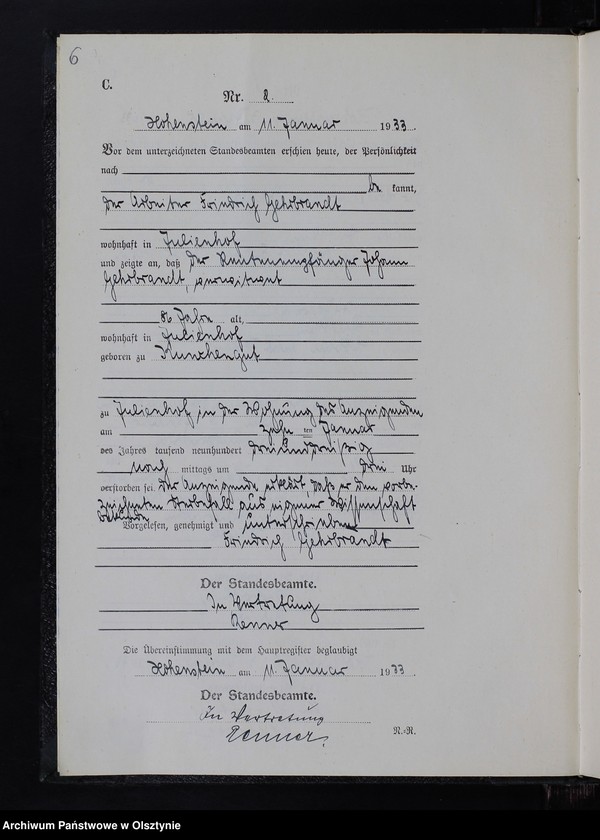 6
C.
Nr. 2.
Hohenstein am 11. Januar 1933.
Vor dem unterzeichneten Standesbeamten erschien heute, der Persönlichkeit
nach
be kannt,
der Arbeiter Friedrich Gehrbrandt
wohnhaft in Julienhof
und zeigte an, daß der Rentenempfänger Johann
Gehrbrandt, verwitwet
86 Jahre alt,
wohnhaft in Julienhof
geboren zu
zu Julienhof in der Wohnung des Anzeigenden
am zehn ten Januar
des Jahres tausend neunhundert dreiunddreißig
nach mittags um drei Uhr
verstorben sei. Der Anzeigende erklärt, daß er den vorbe-
zeichneten Sterbefall aus eigener Wissenschaft
bekunde.
Vorgelesen, genehmigt und unterschrieben
Friedrich Gehrbrandt
Der Standesbeamte.
In Vertretung
Renner
Die Übereinstimmung mit dem Hauptregister beglaubigt
Hohenstein am 11. Januar 1933
Der Standesbeamte.
In Vertretung
Renner.
N.=R.
Archiwum Państwowe w Olsztynie